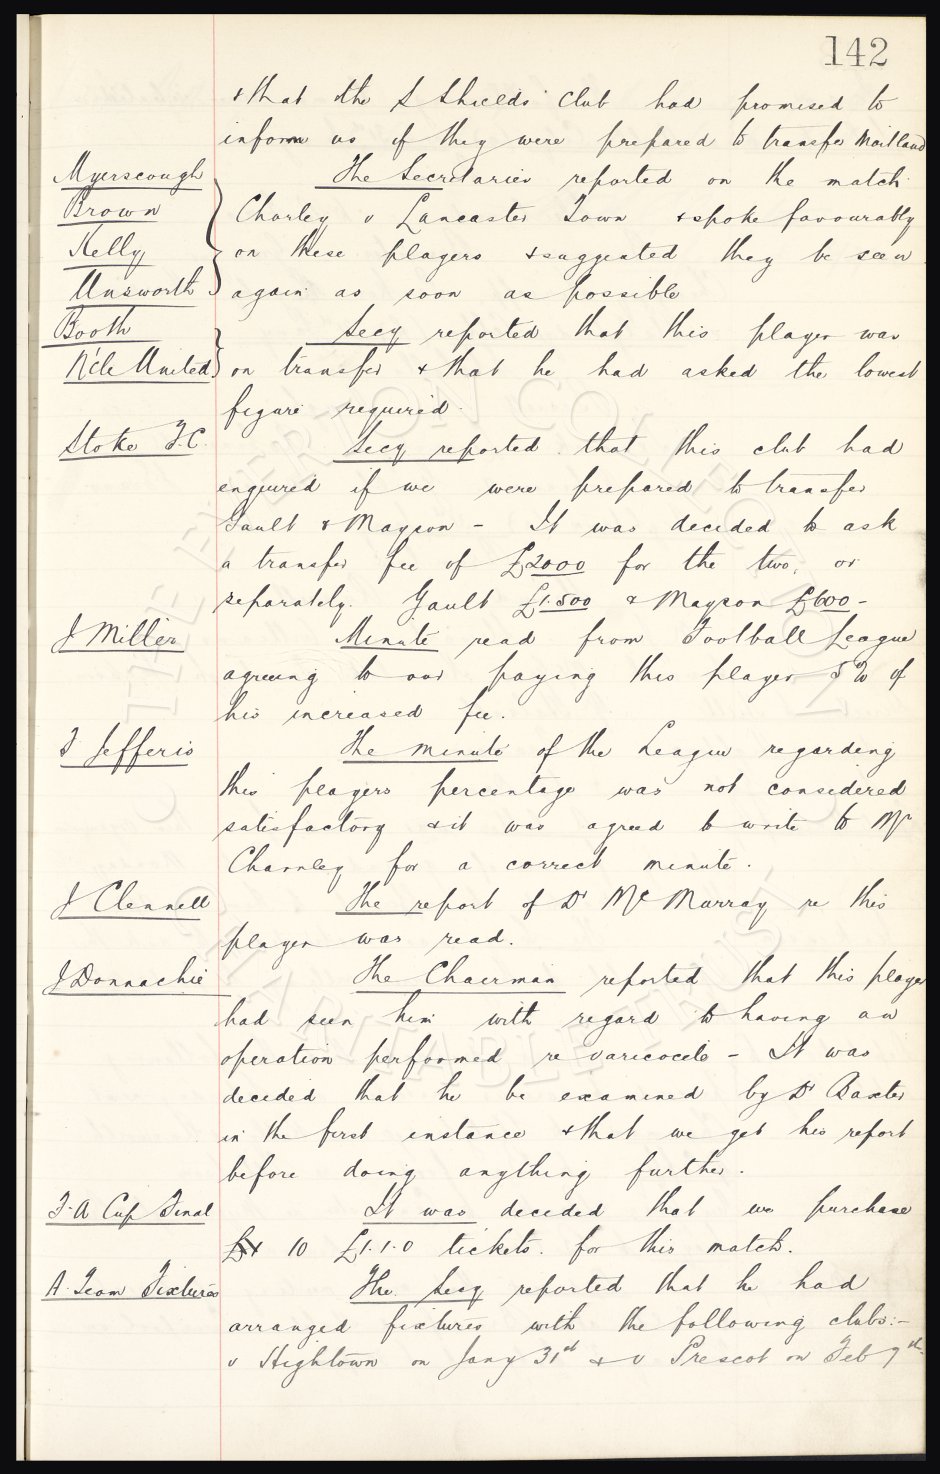 142
& that the S Shields Club had promised to
inform us if they were prepared to transfer Maitland
Myerscough
The Secretaries reported on the match
Brown
Chorley v Lancaster Town & spoke favourably
Kelly
on these players & suggested they be seen
Unsworth
again as soon as possible
Booth
Secy reported that this player was
N'cle United
on transfer & that he had asked the lowest
figure required.
Stoke F.C.
Secy reported that this club had
enquired if we were prepared to transfer
Gault & Mayson - It was decided to ask
a transfer fee of £2000 for the two, or
separately. Gault £1.500 & Mayson £600 -
J Miller
Minute read from Football League
agreeing to our paying this player 5% of
his increased fee.
F Jefferis
The minute of the League regarding
this players percentage was not considered
satisfactory & it was agreed to write to Mr
Charnley for a correct minute.
J Clennell
The report of Dr McMurray re this
player was read.
J Donnachie
The Chairman reported that this player
had seen him with regard to having an
operation performed re varicocele - It was
decided that he be examined by Dr Baxter
in the first instance & that we get his report
before doing anything further.
F.A Cup Final
It was decided that we purchase
10 £1.1.0 tickets. for this match.
A. Team Fixtures
The Secy reported that he had
arranged fixtures with the following clubs:-
v Hightown on Jany 31st & v Prescot on Feb 7th.
THE EVERTON COLLECTION
CHARITABLE TRUST